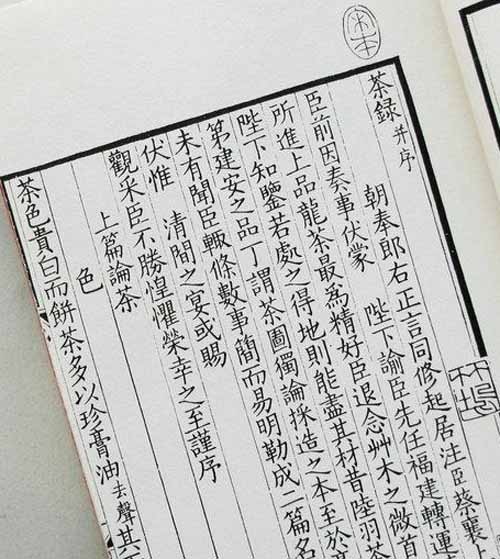 宋本
茶録 并序
朝奉郎右正言同修起居注臣蔡襄
臣前因奏事伏蒙 陛下諭臣先任福建轉運
所進上品龍茶最為精好臣退念艸木之微首
陛下知鑒若處之得地則能盡其材昔陸羽茶
第建安之品丁謂茶圖獨論採造之本至於
未有聞臣輙條數事簡而易明勒成二篇名
伏惟 清閒之宴或賜
觀采臣不勝惶懼榮幸之至謹序
上篇論茶
色
茶色貴白而餅茶多以珍膏油去聲其